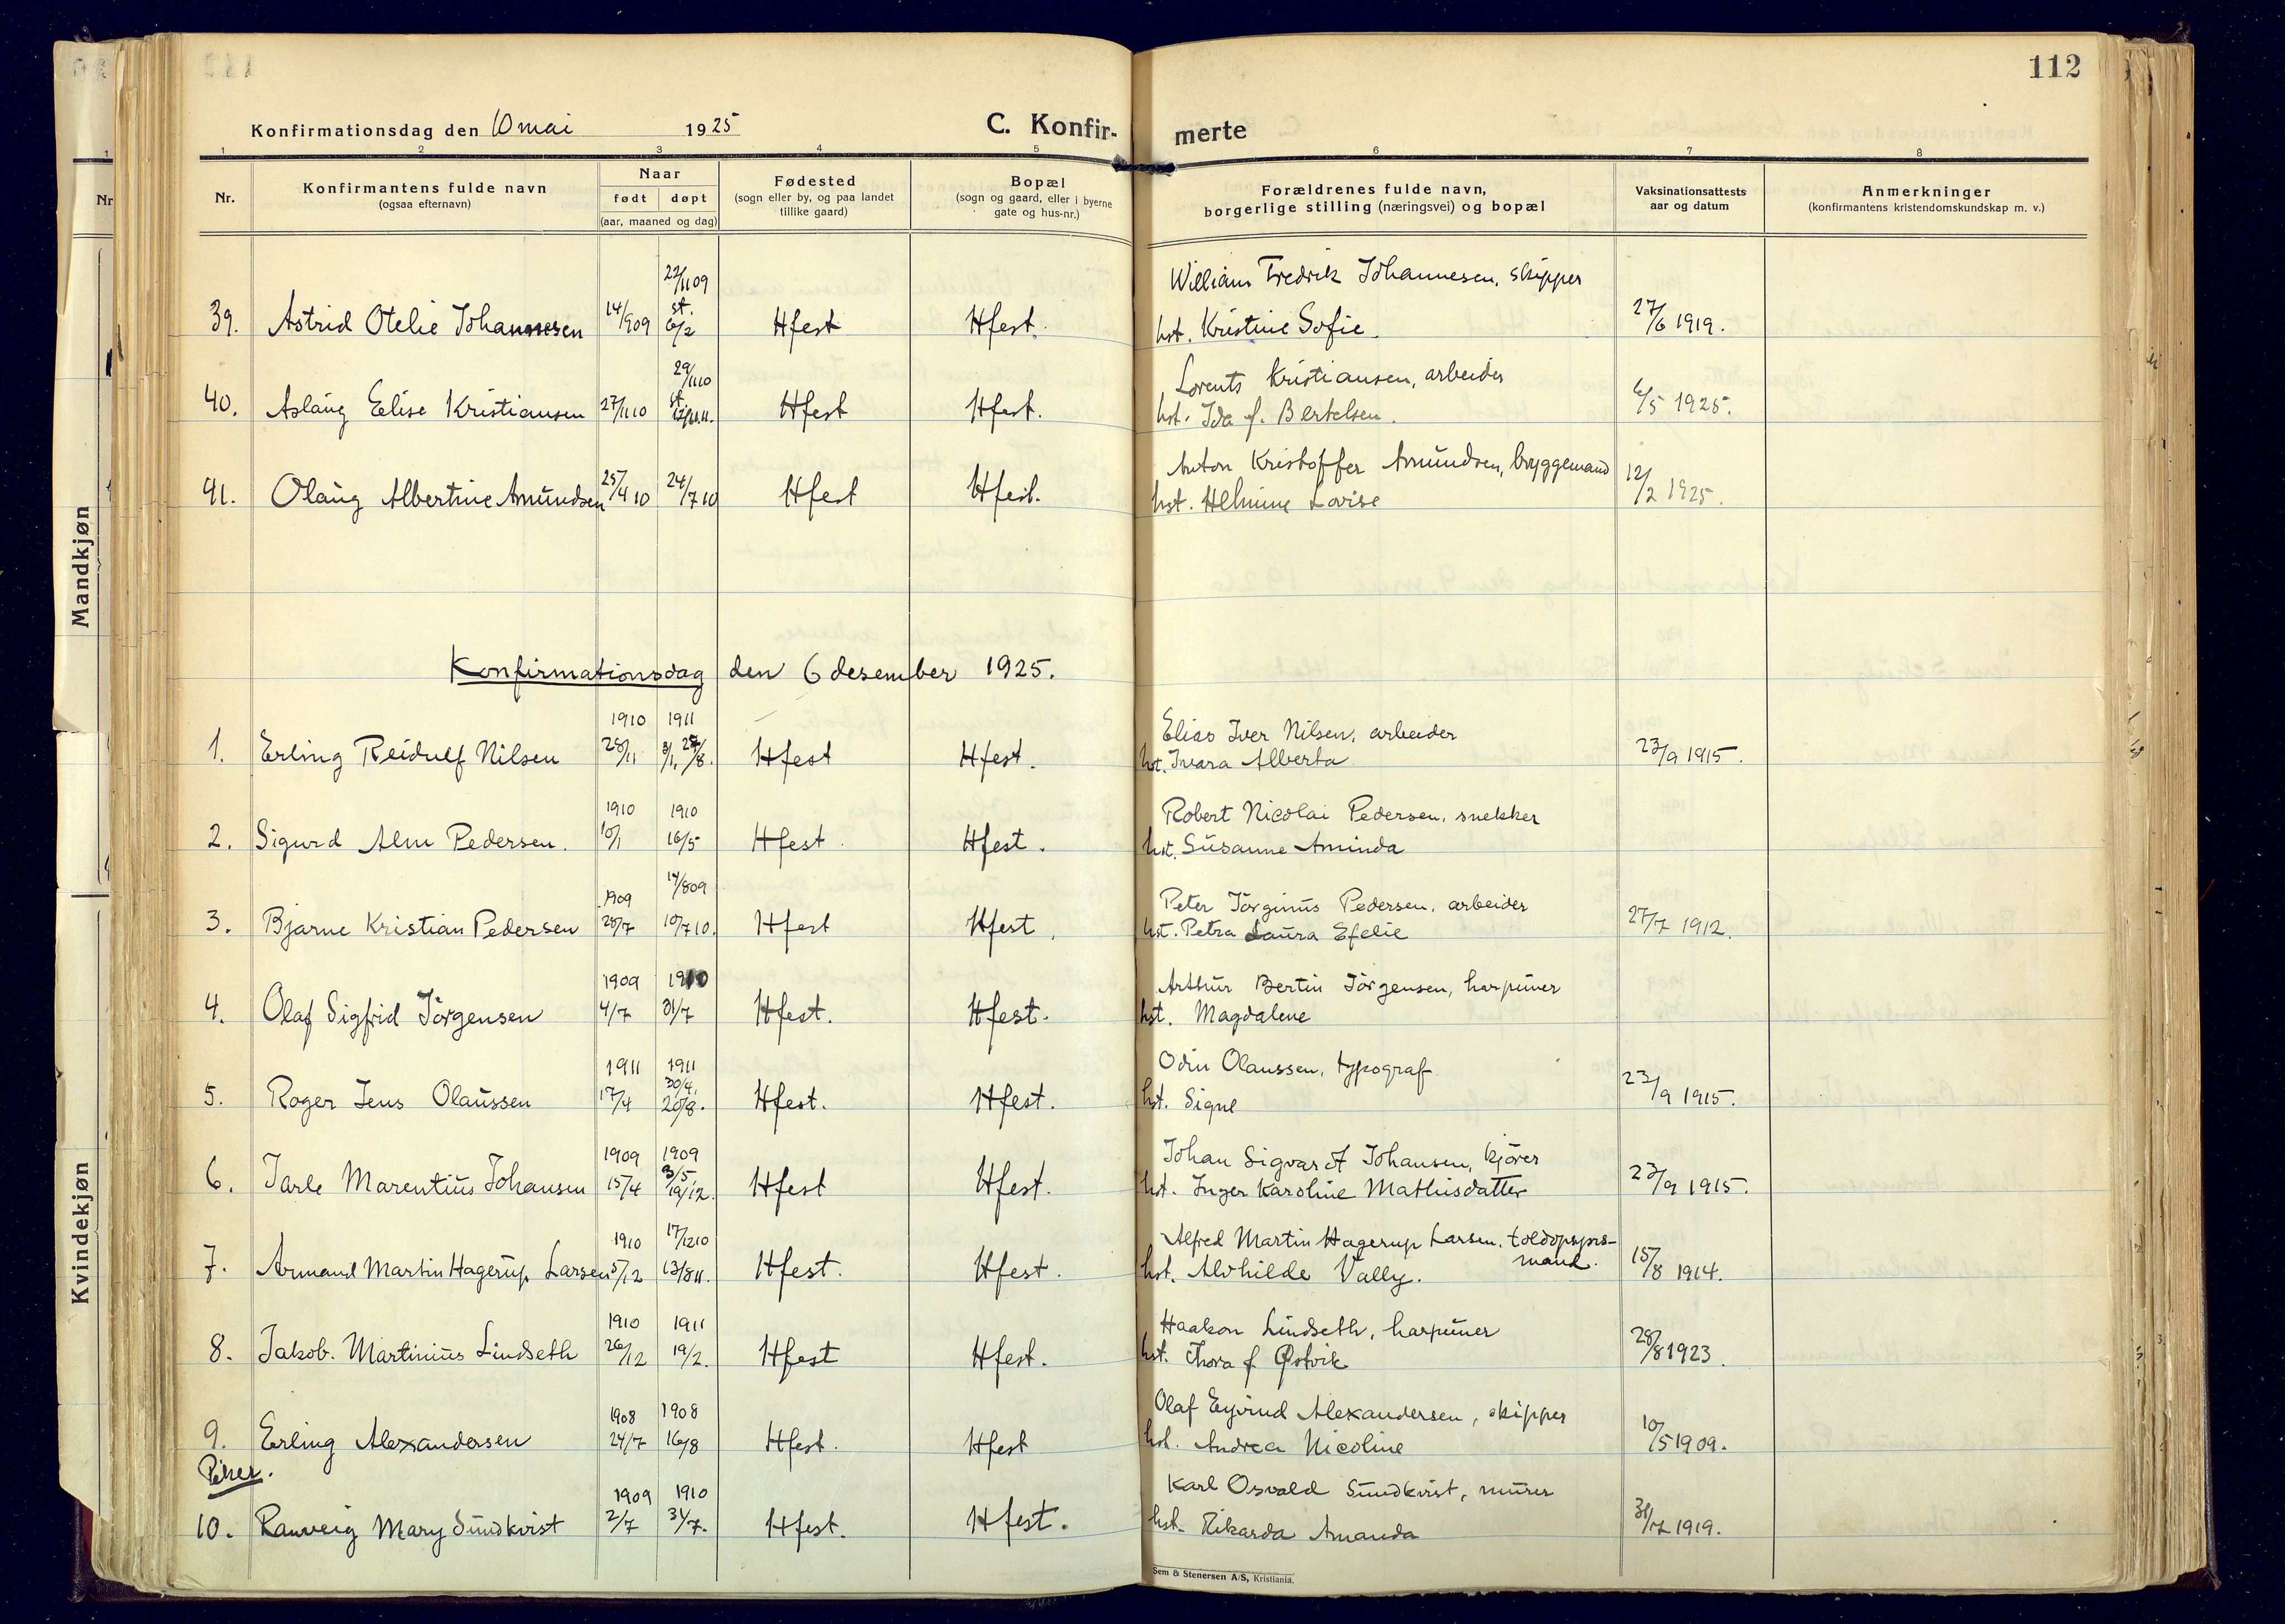 112
Konfirmationsdag den 10 mai 1925
C. Konfir-
merte
1 2 3 4 5 6 7 8
Nr.
Konfirmantens fulde navn
(ogsaa efternavn)
Naar
født døpt
(aar, maaned og dag)
Fødested
(sogn eller by, og paa landet
tillike gaard)
Bopæl
(sogn og gaard, eller i byerne
gate og hus-nr.)
Forældrenes fulde navn,
borgerlige stilling (næringsvei) og bopæl
Vaksinationsattests
aar og datum
Anmerkninger
(konfirmantens kristendomskundskap m. v.)
22/11 09
William Fredrik Johannesen, skipper
st.
39. Astrid Otelie Johannesen 14/9 09 6/2 Hfest Hfest. hst. Kristine Sofie. 27/6 1919.
29/11 10
Lorents Kristiansen, arbeider
st.
40. Aslaug Elise Kristiansen 27/11 10 Hfest Hfest. hst. Ida f. Bertelsen. 6/5 1925.
Anton Kristoffer Amundsen, bryggemand
41. Olaug Albertine Amundsen 25/4 10 24/7 10 Hfest Hfest. hst. Helmine Lovise 12/2 1925.
Konfirmationsdag den 6 desember 1925.
1910 1911
Elias Iver Nilsen, arbeider
1. Erling Reidulf Nilsen 28/11 8/1, 27/8. Hfest Hfest. hst. Ivara Alberta 23/9 1915.
1910 1910
Robert Nicolai Pedersen, snekker
2. Sigurd Alm Pedersen. 10/1 16/5 Hfest Hfest. hst. Susanne Aminda
1909 14/8 09
Peter Jörginus Pedersen, arbeider
3. Bjarne Kristian Pedersen 28/7 10/7 10. Hfest Hfest. hst. Petra Laura Efelie 27/7 1912.
1909 1910
Arthur Bertin Jörgensen, harpuner
4. Olaf Sigfrid Jörgensen 4/7 31/7 Hfest. Hfest. hst. Magdalene
1911 1911
Odin Olaussen, typograf
30/4,
5. Roger Jens Olaussen 17/4 20/8. Hfest. Hfest. hst. Signe 23/9 1915.
1909 1909
Johan Sigvart Johansen, kjörer
3/5,
6. Jarle Marentius Johansen 15/4 19/12. Hfest Hfest. hst. Inger Karoline Mathisdatter 23/9 1915.
1910 17/12 10
Alfred Martin Hagerup Larsen, toldopsyns-
mand.
7. Armand Martin Hagerup Larsen 5/12 13/8 11. Hfest. Hfest. hst. Alvhilde Vally. 15/8 1914.
1910 1911
Haakon Lindseth, harpuner
8. Jakob. Martinius Lindseth 26/12 19/2. Hfest Hfest. hst. Thora f. Østvik 28/8 1923.
1908 1908
Olaf Eyvind Alexandersen, skipper
9. Erling Alexandersen 24/7 16/8 Hfest. Hfest hst. Andrea Nicoline 10/5 1909.
Piker.
1909 1910
Karl Osvald Sundkvist, murer
10. Ranveig Mary Sundkvist 2/7 31/7. Hfest. Hfest. hst. Rikarda Amanda 1919.
Sem & Stenersen A/S, Kristiania.
Mandkjøn
Kvindekjøn
Nr
1